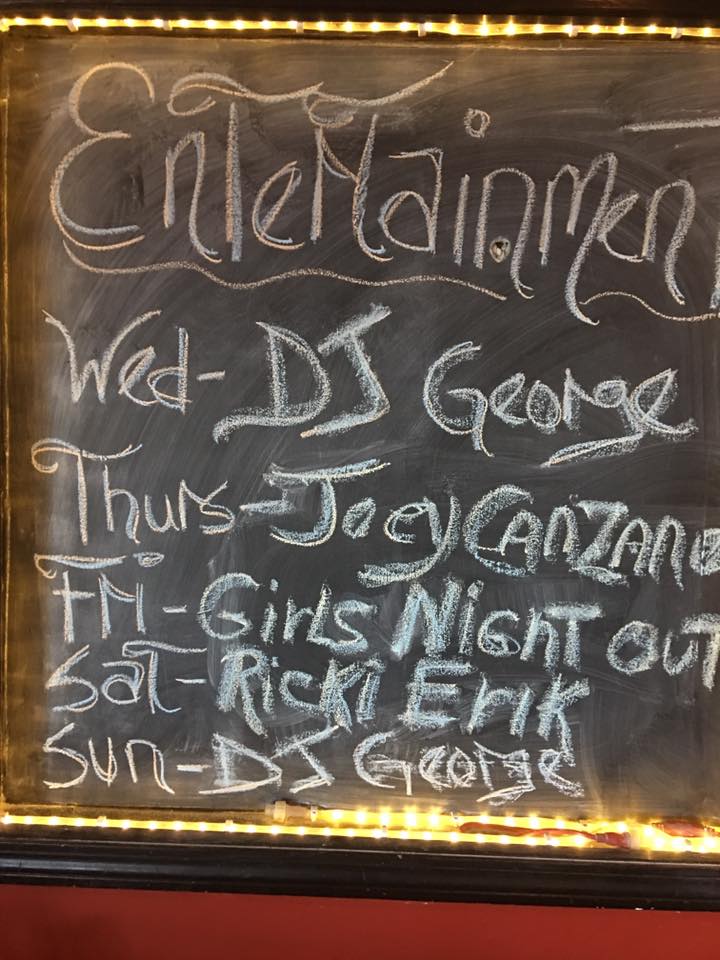 Entertainment
Wed- DJ George
Thurs- Joey CANZANO
Fri- Girls Night OUT
Sat- Ricki Erik
Sun- DJ George